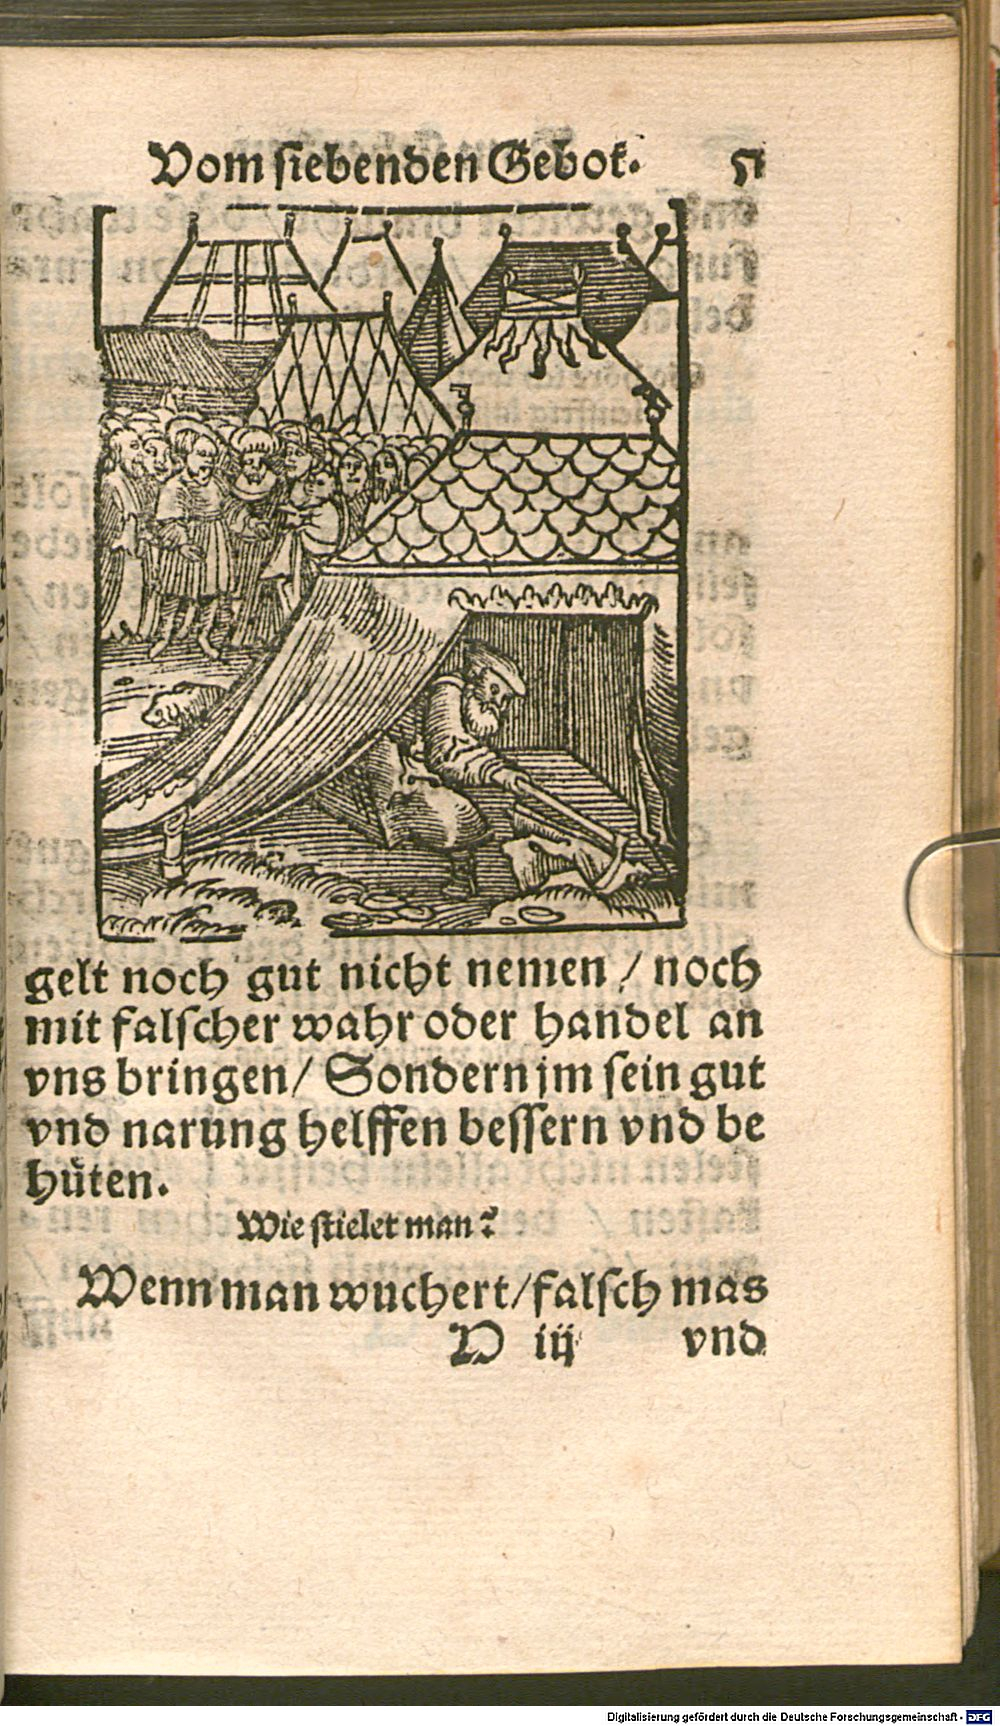 Vom siebenden Gebot.
gelt noch gut nicht nemen / noch
mit falscher wahr oder handel an
vns bringen / Sondern jm sein gut
vnd narung helffen bessern vnd be
hüten.
Wie stielet man?
Wenn man wuchert / falsch mas
D iij vnd
Digitalisierung gefördert durch die Deutsche Forschungsgemeinschaft - DFG